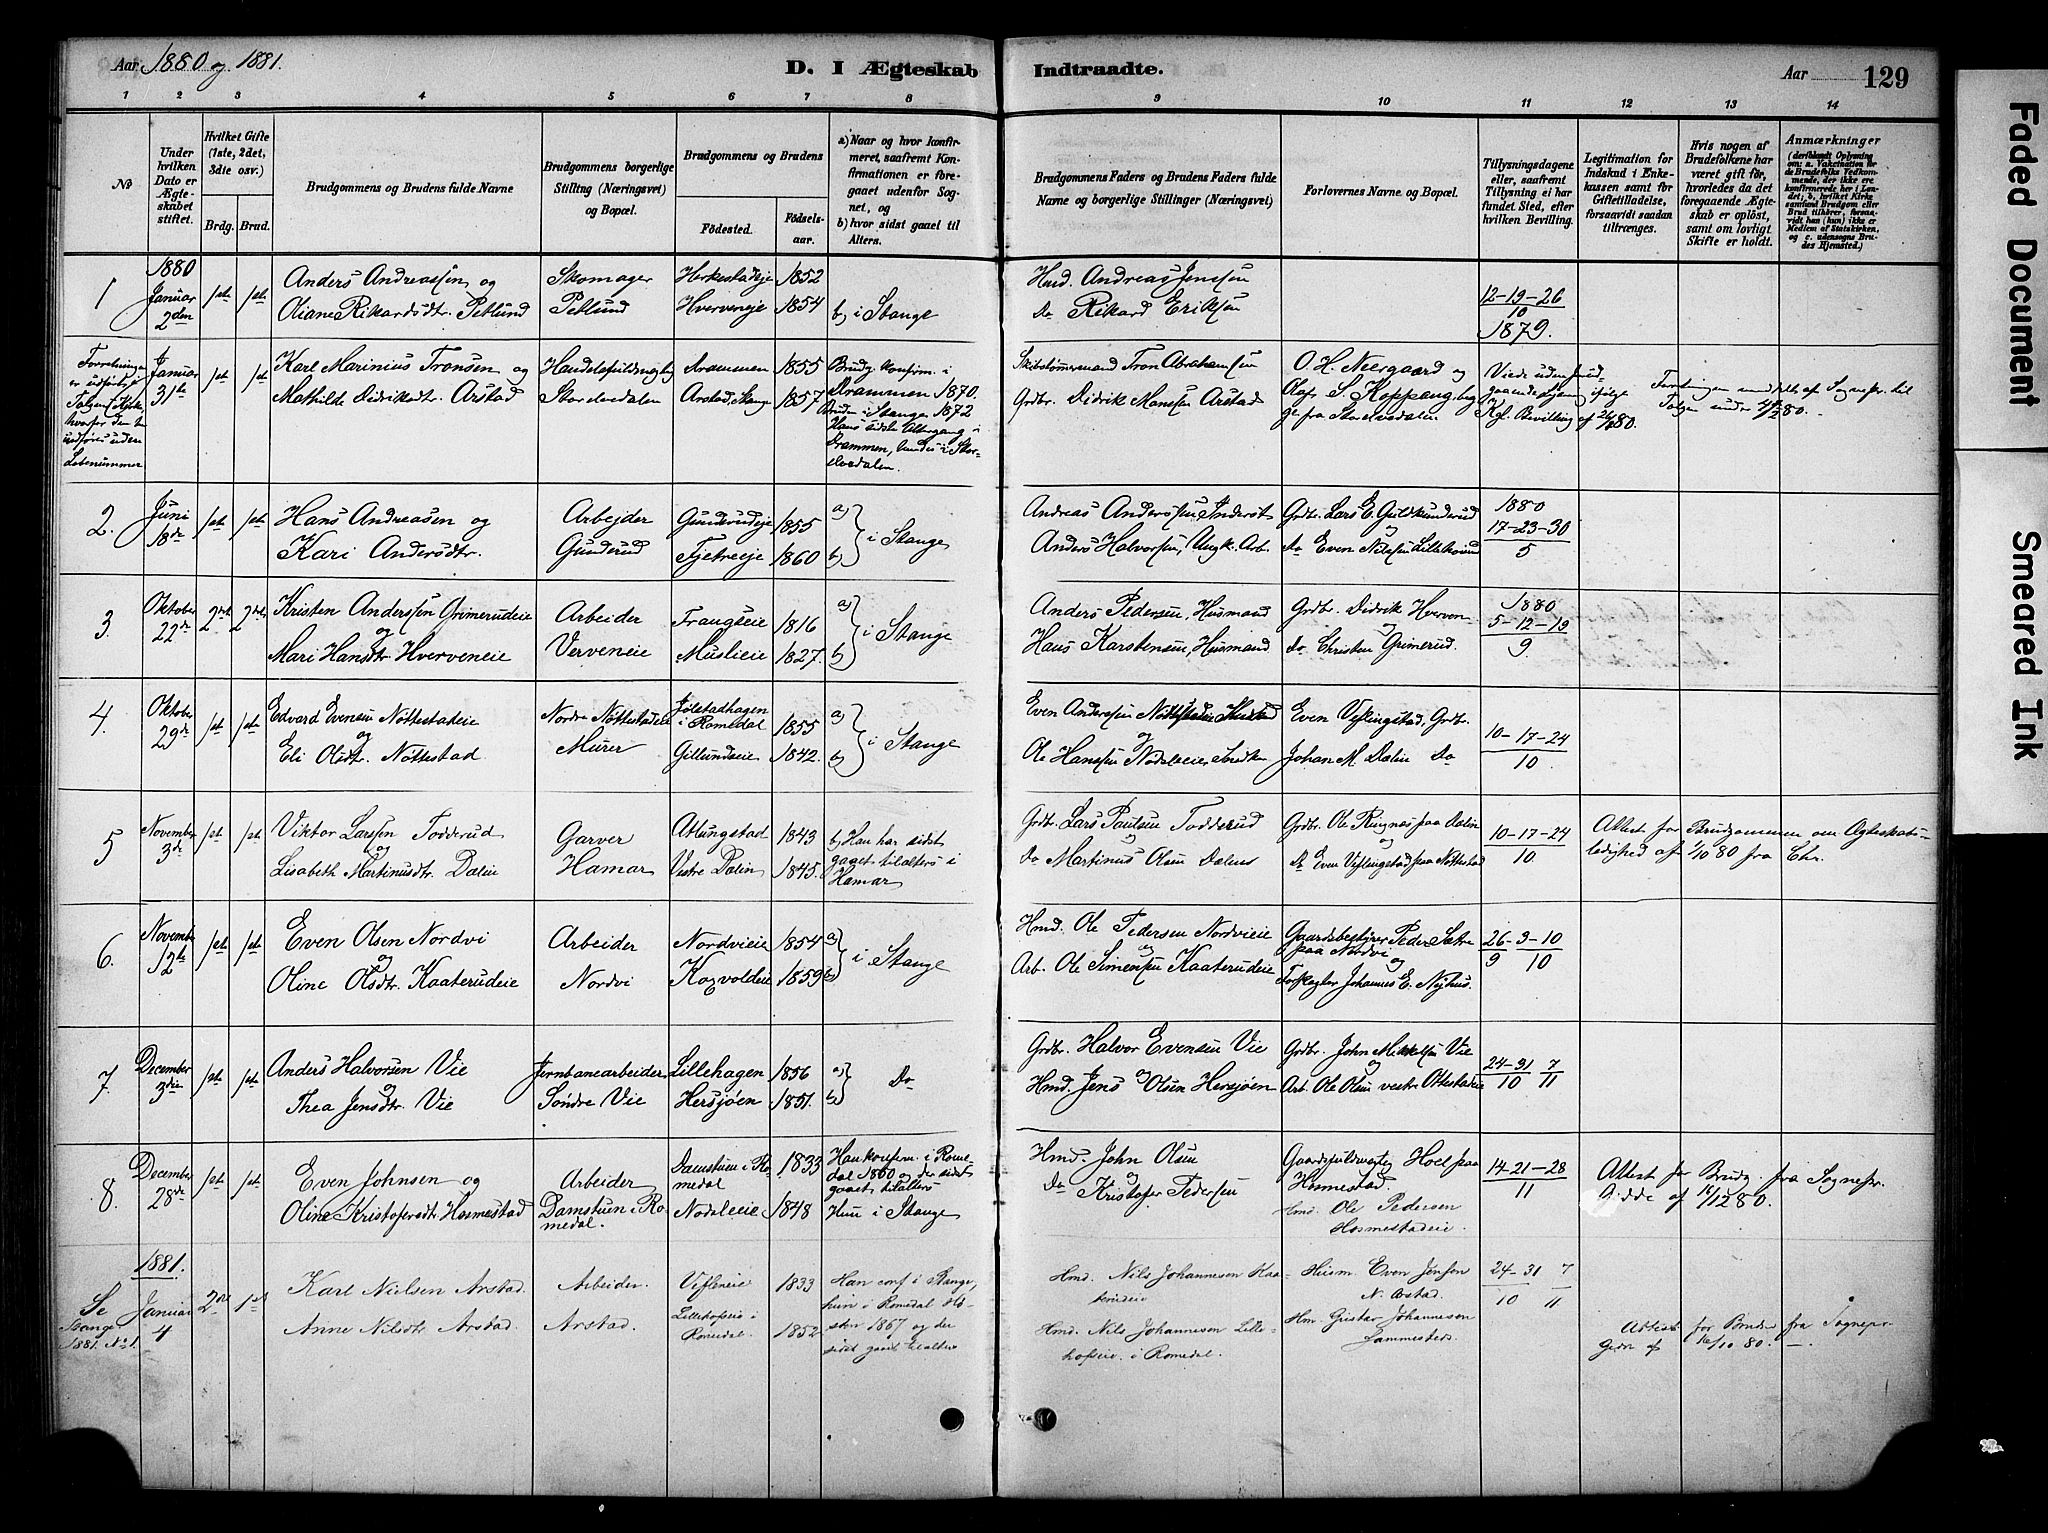 Aar 1880 og 1881.
D. I Ægteskab Indtraadte.
Aar 129
1 2 3 4 5 6 7 8 9 10 11 12 13 14
No
Under hvilken Dato er Ægteskabet stiftet.
Hvilket Gifte (1ste, 2det, 3die osv.)
Brdg. Brud.
Brudgommens og Brudens fulde Navne
Brudgommens borgerlige Stilling (Næringsvei) og Bopæl.
Brudgommens og Brudens
Födested. Födselsaar.
a) Naar og hvor konfirmeret, saafremt Konfirmationen er foregaaet udenfor Sognet, og
b) hvor sidst gaaet til Alters.
Brudgommens Faders og Brudens Faders fulde Navne og borgerlige Stillinger (Næringsvei)
Forlovernes Navne og Bopæl.
Tillysningsdagene eller, saafremt Tillysning ei har fundet Sted, efter hvilken Bevilling.
Legitimation for Indskud i Enkekassen samt for Giftetilladelse, forsaavidt saadan tiltrænges.
Hvis nogen af Brudefolkene har været gift för, hvorledes da det foregaaende Ægteskab er oplöst, samt om lovligt Skifte er holdt.
Anmærkninger
(deriblandt Oplysning om: a. Vaksination for de Brudefolks Vedkommende, der ikke ere konfirmerede her i Landet; b, hvilket Kirkesamfund Brudgom eller Brud tilhörer, forsaavidt han (hun) ikke er Medlem af Statskirken, og c. udensogns Brudes Hjemsted.)
1 1880 Januar 2den 1ste 1ste
Anders Andreassen og
Oliane Rikardsdtr. Petlund
Skomager
Petlund
Herkestadeie 1852
Hverveneie 1854
b) i Stange
Hmd. Andreas Jenssen
do Rikard Eriksen
12-19-26
10
1879.
Januar 31te 1ste 1ste
Karl Marinius Tronsen og
Mathilde Didriksdtr. Arstad
Storelvedalen
Drammen 1855
Arstad, Stange 1857
Brudg. konfirm. i
Drammen 1870.
Bruden i Stange 1872
Hans sidste Altergang i
Drammen, hendes i Storelvedalen.
Skibstømmermand Tron Abrahamsen
Grdbr. Didrik Hansen Arstad
O. H. Neergaard og
Olaf S. Koppang begge fra Storelvedalen
Kgl. Bevilling
2. Juni 18de 1ste 1ste
Hans Andreasen og
Kari Andersdtr.
Arbejder
Gunderud
Gunderudeie 1855
Tjetreeie 1860
a) b) i Stange
Andreas Anderssen, Inderst
Anders Halvorsen, Ungk. Arb.
do Even Nilssen
1880
17-23-30
5
3. Oktober 22de 2det 2det
Kristen Anderssen Grimerudeie
og
Mari Hansdtr. Hverveneie
Arbeider
Verveneie
Frangseie 1816
Muslieie 1827.
a) b) i Stange
Anders Pedersen, Husmand
Hans Karstensen, Husmand
Grdbr. Didrik Hverven
og
do Christen Grimerud.
1880
5-12-19
9
4. Oktober 29de 1ste 1ste
Edvard Evensen Nöttestadeie
og
Eli Olsdtr. Nöttestad
Nordre Nöttestadeie
Murer
i Romedal 1855
Gillundseie 1842.
a) b) i Stange
Even Anderssen Nöttestadeie
og
Ole Hanssen Nodeleie
Even Veflingstad, Grdbr.
Johan M. Dælin do
10-17-24
10
5 November 3die 1ste 1ste
Viktor Larssen Todderud
og
Lisabeth Martinusdtr. Dælin
Garver
Hamar
Atlungstad 1843
Vestre Dælin 1845.
b) Han har sidst
gaaet til alters i
Hamar
Grdbr. Lars Paulsen Todderud
og
do Martinus Olsen Dælens
Grdbr. Ole Ringnæs paa Dælin
og
do Even Veflingstad paa Nöttestad
10-17-24
10.
Attest for Brudgommen om Ægteskabsledighed af 1/10 80 fra Chr.
6. November 12te 1ste 1ste
Even Olsen Nordvi
og
Oline Olsdtr. Kaaterudeie
Arbeider
Nordvi
Nordvieie 1854
Kogvoldeie 1859
a) b) i Stange
Hmd. Ole Pedersen Nordvieie
og
Arb. Ole Simensen Kaaterudeie
Gaardsbestyrer Peder Sætre
paa Nordvi
og
Forpagter Johannes E. Nyhus.
26-3-10
9 10
7. December 3die 1ste 1ste
Anders Halvorsen Vie
og
Thea Jensdtr. Vie
Jernbanearbeider
Söndre Vie
Lillehagen 1856
Hersjöen 1851.
a) b) Do
Grdbr. Halvor Evensen Vie
og
Hmd. Jens Olsen Hersjöen
Grdbr. John Mikkelsen Vie
og
Arb. Ole Olsen vestre Ottestadeie
24-31 7
10 11
8. December 28de 1ste 1ste
Even Johnsen og
Oline Kristofersdtr. Hosmestad
Arbeider
Damstuen i Romedal.
Damstuen i Romedal 1833
Nodeleie 1848
Han konfirm. i Romedal 1860 og der sidst
gaaet til alters
Hun i Stange
Hmd. John Olsen
og
do Kristofer Pedersen
Gaardsfuldmægtig Hoel paa
Hosmestad.
Hmd. Ole Pedersen
Hosmestadeie.
14-21-28
11
Attest for Brudg. fra Sognepr.
Gjödde af 14/12 80.
1881.
Se Stange 1881. No 1. Januar 4 2det 1ste
Karl Nielsen Arstad.
Anne Nilsdtr Arstad.
Arbeider.
Arstad.
Vefleneie 1833
Lillehofseie i
Romedal. 1852
Han conf i Stange,
hun i Romedal
1867 og der
sidst gaaet til alters
Hmd. Nils Johannesen Kaaterudeie
Hmd. Nils Johannesen Lillehofseie i Romedal.
Husm. Even Jensen
N. Arstad.
Hm. Gustav Johannesen
Sammesteds.
24-31 7
10 11
Attest for Bruden fra Sognepr.
af 16/10 80.
Faded Document
Smeared Ink